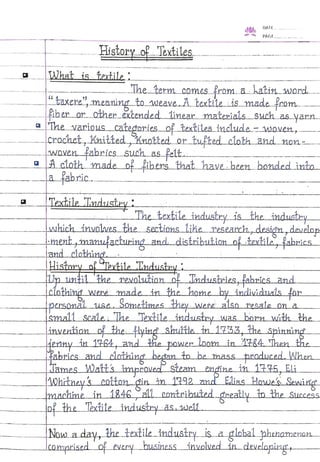 DATE
PAGE
History of Textiles
What is textile :
The term comes from a Latin word
"taxere", meaning to weave. A textile is made from
fiber or other extended linear materials such as yarn.
The various categories of textiles include - woven,
crochet, Knitted, Knotted or tufted cloth and non-
woven fabrics such as felt.
A cloth made of fibers that have been bonded into
a fabric.
Textile Industry :
The textile industry is the industry
which involves the sections like research, design, develop
-ment, manufacturing and distribution of textile, fabrics
and clothing.
History of Textile Industry :
Up until the revolution of Industries, fabrics and
clothing were made in the home by individuals for
personal use. Sometimes they were also resale on a
small scale. The Textile industry was born with the
invention of the flying shuttle in 1733, the spinning
jenny in 1764, and the power loom in 1784. Then the
fabrics and clothing began to be mass produced. When
James Watt's improved steam engine in 1775, Eli
Whitney's cotton gin in 1792 and Elias Howe's Sewing
machine in 1846, all contributed greatly to the success
of the Textile industry as well.
Now a day, the textile industry is a global phenomenon
comprised of every business involved in developing,